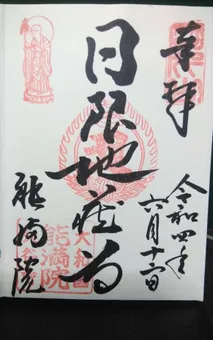 奉拝
令和四年
六月十二日
日限地蔵尊
能満院
大和国
能満院